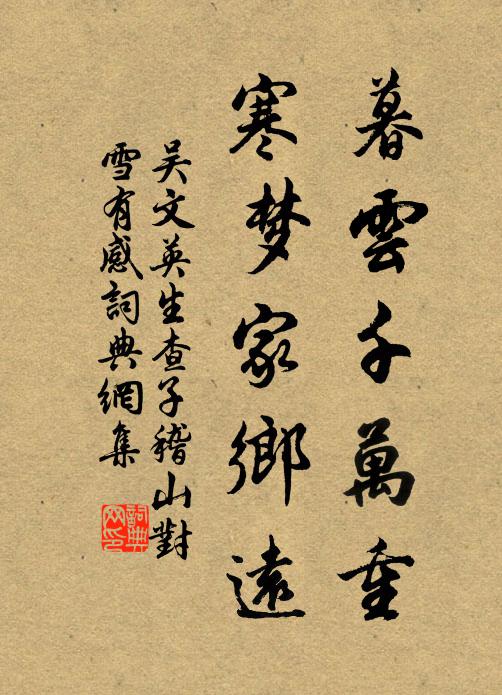 暮雲千萬重
寒梦家鄉遠
吴文英生查子稽山對
雪有感詞典網集
詞典網印